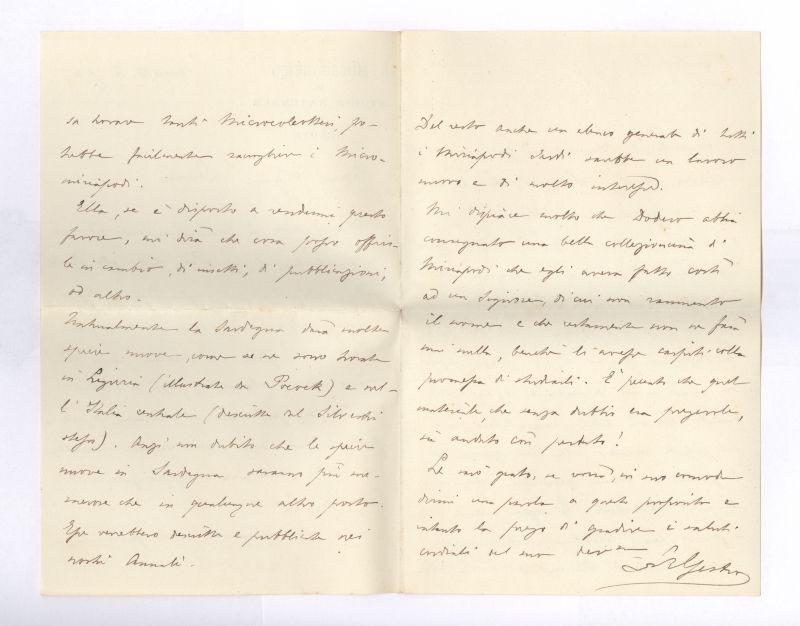 sa trovare tanti Microcoleotteri, po-
trebbe facilmente raccogliere i Micro-
miriapodi.
Ella, se è disposto a rendermi questo
favore, mi dirà che cosa posso offrir-
le in cambio, di insetti, di pubblicazioni,
od altro.
Naturalmente la Sardegna darà molte
specie nuove, come se ne sono trovate
in Liguria (illustrate da Pocock) e nel-
l'Italia centrale (descritte dal Silvestri
stesso). Anzi non dubito che le specie
nuove in Sardegna saranno più nu-
merose che in qualunque altro posto.
Esse verrebbero descritte e pubblicate nei
nostri Annali.
Del resto anche un elenco generale di tutti
i Miriapodi sardi sarebbe un lavoro
nuovo e di molto interesse.
Mi dispiace molto che Dodero abbia
consegnato una bella collezioncina di
Miriapodi che egli aveva fatto costì
ad un Signore, di cui non rammento
il nome e che certamente non ne farà
mai nulla, benché li avesse carpiti colla
promessa di studiarli. È peccato che quel
materiale, che senza dubbio era pregevole,
sia andato così perduto!
Le sarò grato, se vorrà, a suo comodo
dirmi una parola a questo proposito e
intanto la prego di gradire i saluti
cordiali del suo dev
R Gestro